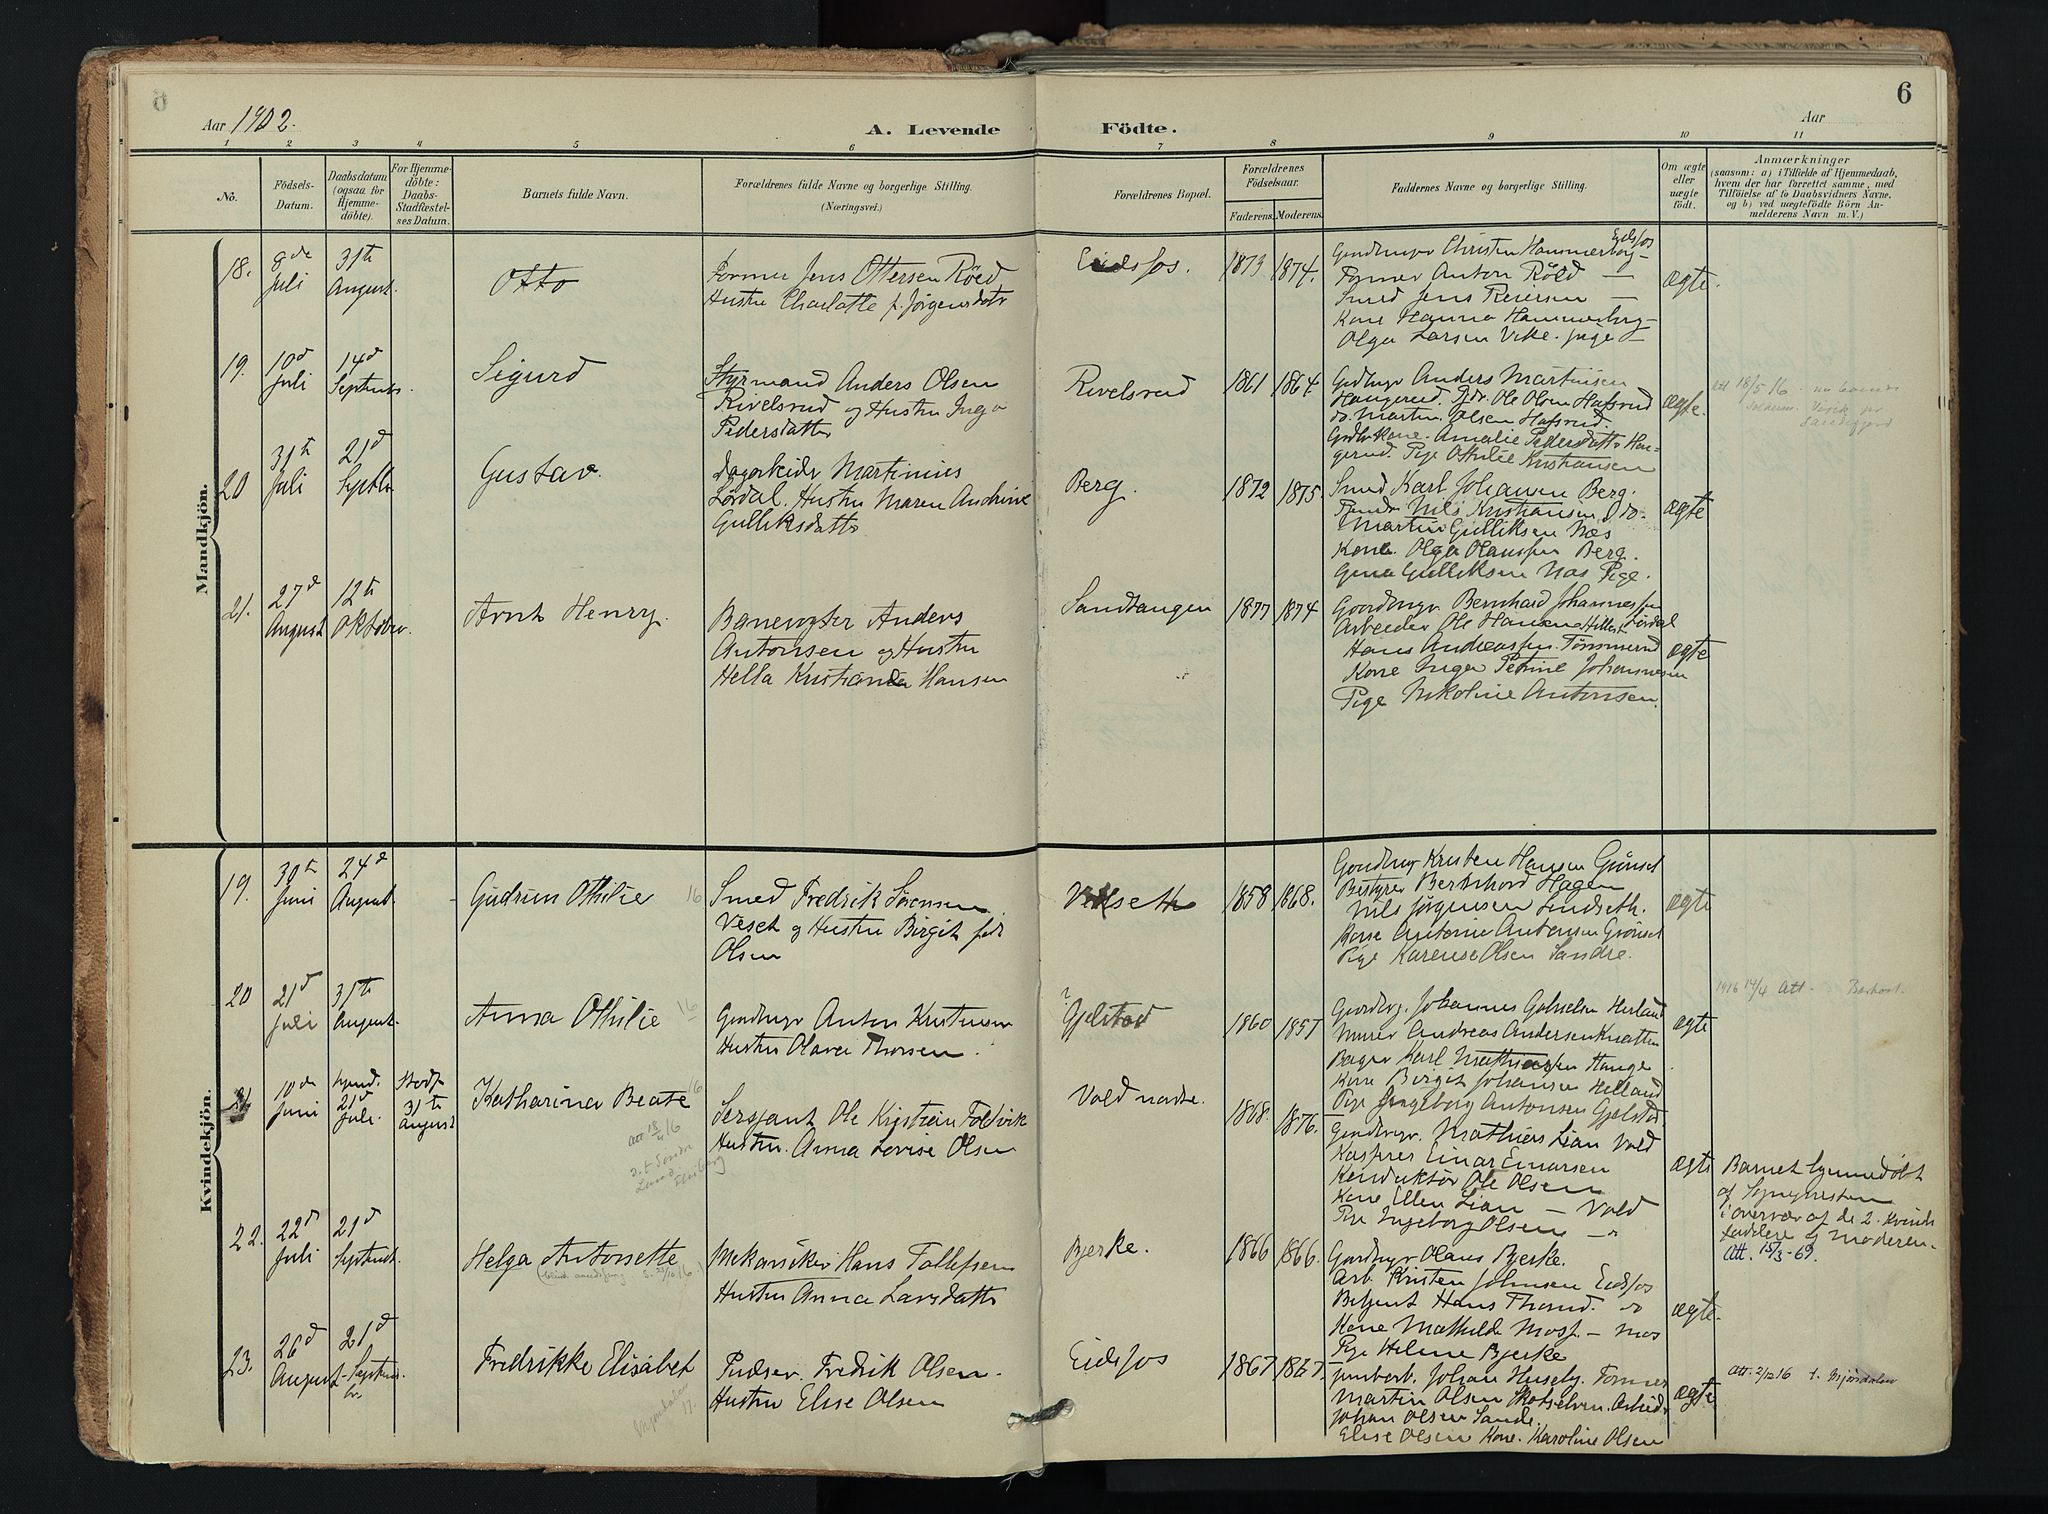 6
Aar 1902.
A. Levende Födte.
Aar
1 2 3 4 5 6 7 8 9 10 11
No.
Födsels-
Datum.
Daabsdatum
(ogsaa for
Hjemme-
döbte).
For Hjemme-
döbte:
Daabs-
Stadfæstel-
ses Datum.
Barnets fulde Navn.
Forældrenes fulde Navne og borgerlige Stilling.
(Næringsvei.)
Forældrenes Bopæl.
Forældrenes
Födselsaar.
Faderens. Moderens.
Faddernes Navne og borgerlige Stilling.
Om ægte
eller
uægte
födt.
Anmærkninger
(saasom: a) i Tilfælde af Hjemmedaab,
hvem der har forrettet samme, med
Tilföielse af to Daabsvidners Navne,
og b) ved uægtefödte Börn An-
melderens Navn m. V.)
Mandkjön.
18. 8de Juli
31te August.
Otto
Former Jens Ottersen Röed
Hustru Charlotte f. Jörgensdatr
Eidsfos.
1873 1874.
Gaardbruger Christen Hammerborg Eidsfos
Former Anton Röed —
Smed Jens Reiersen —
Kone Hanna Hammerborg —
Olga Larsen Vike. pige —
ægte.
19. 10d Juli
14d Septembr.
Sigurd
Styrmand Anders Olsen
Rivelsrud og Hustru Inga
Pedersdattr
Rivelsrud
1861 1864.
Gdbrgr Anders Martinsen
Haugerud. Gdr. Ole Olsen Hafsrud
do. Martin Olsen Hafsrud.
Gdbr kone Amalie Pedersdattr Hau-
gerud. Pige Othilie Kristiansen
ægte.
Att 18/5 16
20 31te Juli
21d Septbr
Gustav.
Dagarbeider Martinius
Lördal. Hustru Maren Andrine
Gulliksdattr
Berg.
1872 1875.
Smed Karl Johansen Berg.
Nils Kristiansen do.
Martin Gulliksen Næs
Kone Olga Olaussen Berg.
Gina Gulliksen Næs Pige.
ægte
21. 27d August
12te Oktober.
Arnt Henry.
Banevogter Anders
Antonsen og Hustru
Hella Kristiane Hansen
Sandtangen
1877 1874
Gaardbrugr. Bernhard Johannessen
Arbeider Ole Hansen Lördal
Hans Andreassen Tömmerud
Kone Inga Petrine Johannesen
Pige Nikoline Antonsen.
ægte
Kvindekjön.
19. 30te Juni
24d August
Gudrun Othilie 16
Smed Fredrik Sörensen
Veset og Hustru Birgit född
Olsen
1858 1868.
Gaardbrugr Kristen Hansen Grönset
Bestyrer Bernhard Hagen
Nils Jörgensen Lindseth.
Kone Antonie Antonsen Grönset
Pige Karense Olsen Sandre.
ægte
20 21d Juli
31te August.
Anna Othilie 16
Gaardbrugr Anton Kristensen
Hustru Olava Thorsen.
Gjelstad
1860 1857
Gaardbrg. Johannes Gabrielsen Helland
Murer Andreas Andersen Knatten
Bager Karl Mathiassen Hauge
Kone Birgit Johansen Helland
Pige Ingeborg Antonsen Gjelstad
ægte
1916 14/4 Att.
21 10de Juni
hjmd. 21d Juli.
Stadf. 31te August
Katharina Beate 16
Att 18/4 16
Sergjant Ole Kristian Foldvik
Hustru. Anna Lovise Olsen
Vold nadre.
1868. 1876.
Gaardbrugr. Mathias Lian Vold
Kasserer Einar Einarsen
Konduktör Ole Olsen
Kone Ellen Lian — Vold
Pige Ingeborg Olsen — "
ægte
Barnet hjemmedöbt
af Sognepresten
i overvær af de 2 kvindl.
faddere og moderen.
Att. 15/3-69.
22. 22d Juli
21d Septembr.
Helga Antonette
Mekaniker Hans Tollefsen
Hustru Anna Larsdattr
Bjerke.
1866 1866.
Gaardbrugr Olaus Bjerke.
Arb. Kristen Johnsen Eidsfos
Betjent Hans Thrond. do
Kone Mathilde Moss. — Mos
Pige Helene Bjerke
ægte.
23. 26d August
21d Septembr
Fredrikke Elisabet
Pudser. Fredrik Olsen.
Hustru Elise Olsen
Eidsfos
1867 1867.
Johan Huseby. Former
Martin Olsen Skotselven. Arbeidr
Johan Olsen Sande.
Elise Olsen Kone. Karoline Olsen
ægte
Att. 2/12 16 t. Mjöndalen